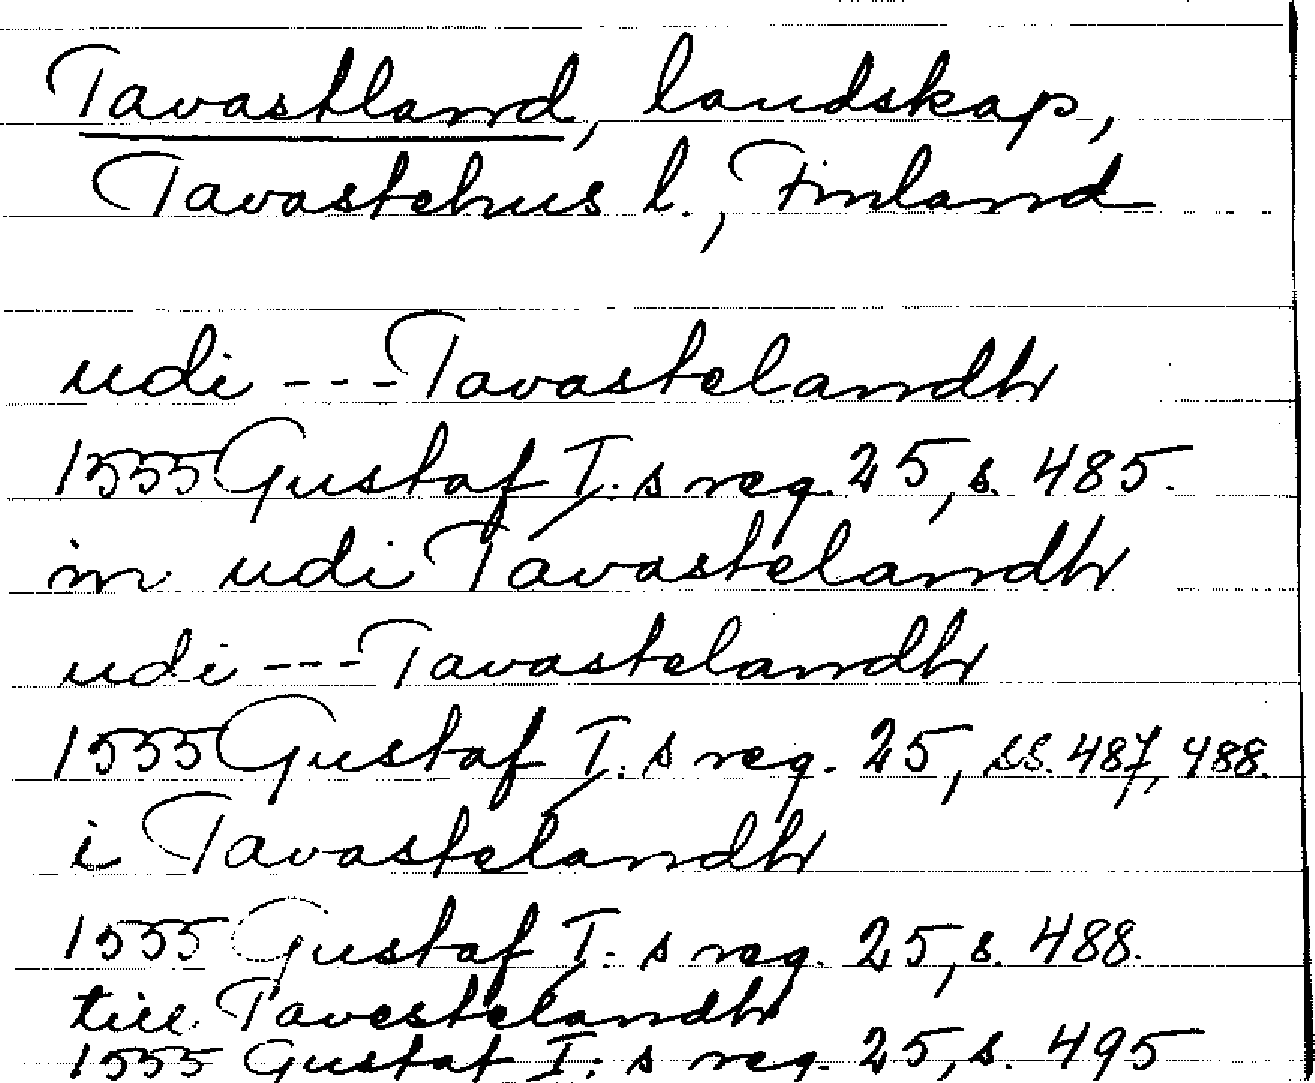 Tavastland, landskap,
Tavastehus l., Finland
udi --- Tavastelandh
1555 Gustaf I:s reg. 25, s. 485.
in udi Tavastelandh
udi --- Tavastelandh
1555 Gustaf I:s reg. 25, ss. 487, 488.
i Tavastelandh
1555 Gustaf I:s reg. 25, s. 488.
till Tavestelandh
1555 Gustaf I:s reg. 25, s. 495